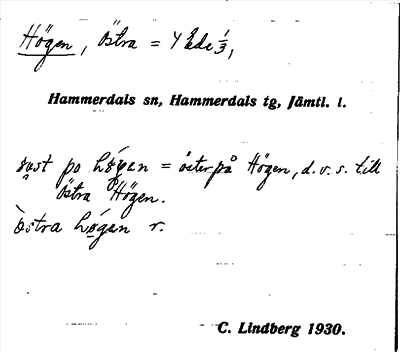 Högen, Östra = Y kde 1/3,
Hammerdals sn, Hammerdals tg, Jämtl. l.
åust po högen = österpå Högen, d.v.s. till
Östra Högen.
östra högen r.
C. Lindberg 1930.